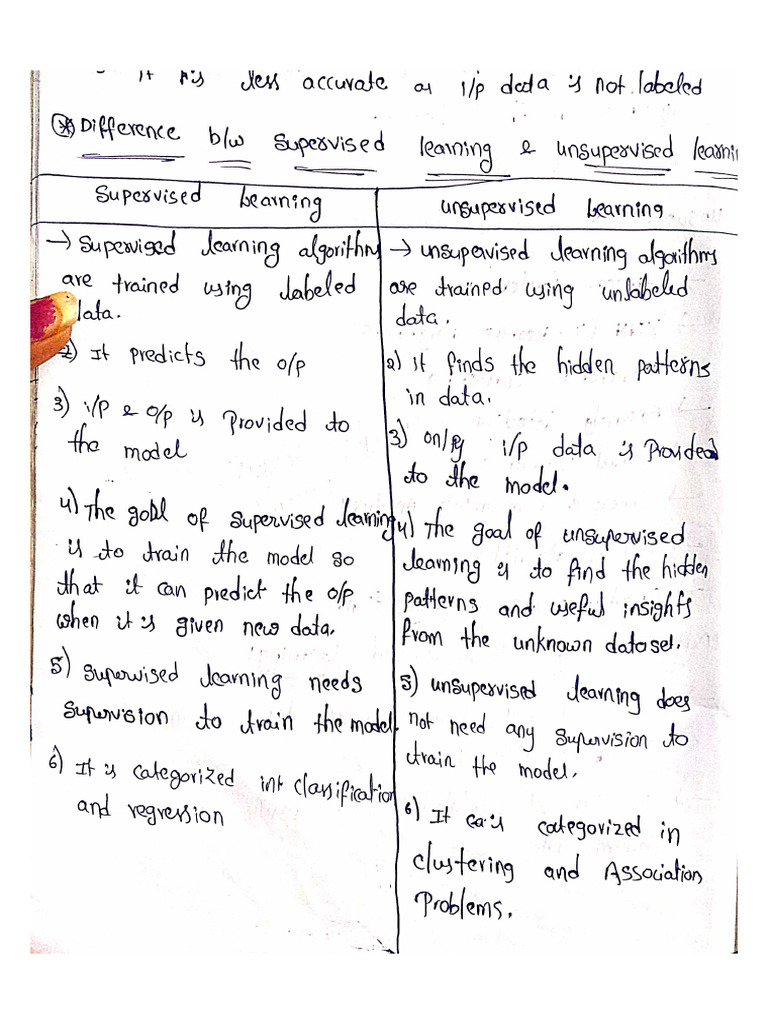 It is less accurate as i/p data is not labeled
* Difference b/w supervised learning & unsupervised learnin
Supervised Learning
→ Supervised learning algorithms
are trained using labeled
data.
2) It predicts the o/p
3) i/p & o/p is Provided to
the model
4) The goal of supervised learning
is to train the model so
that it can predict the o/p
when it is given new data.
5) Supervised learning needs
supervision to train the model.
6) It is categorized int classification
and regression
Unsupervised Learning
→ unsupervised learning algorithms
are trained using unlabeled
data.
2) it finds the hidden patterns
in data.
3) only i/p data is Provided
to the model.
4) The goal of unsupervised
learning is to find the hidden
patterns and useful insights
from the unknown dataset.
5) unsupervised learning does
not need any supervision to
train the model.
6) It is categorized in
clustering and Association
Problems.